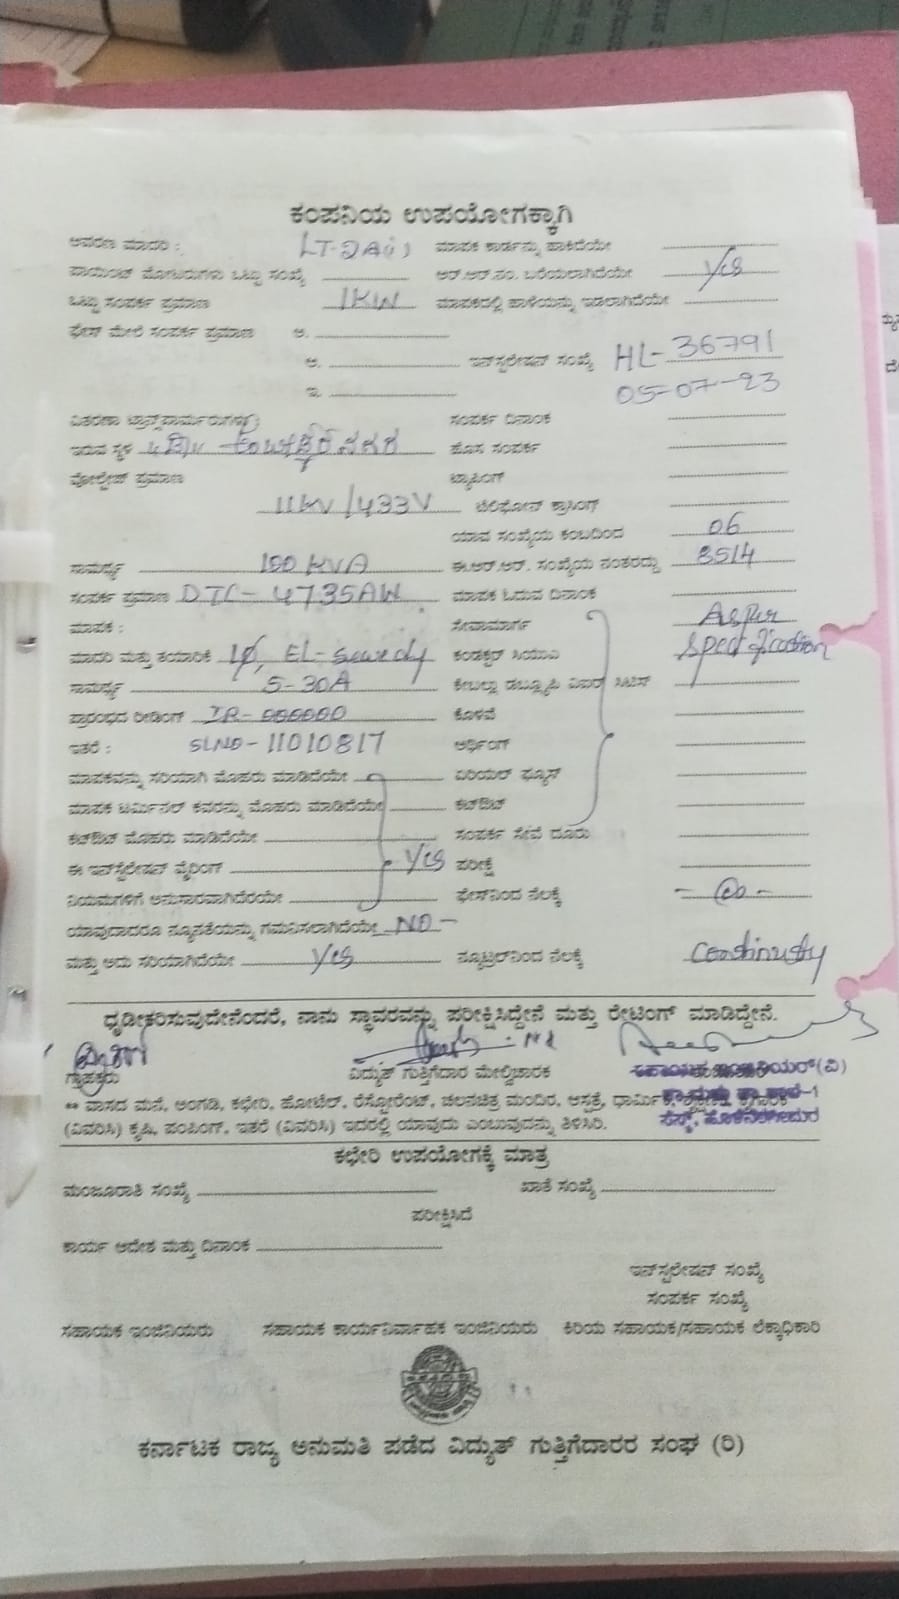 ಕಂಪನಿಯ ಉಪಯೋಗಕ್ಕಾಗಿ
ಆವರಣ ಮಾದರಿ : LT-2A(i) ಮಾಪಕ ಕಾರ್ಡನ್ನು ಹಾಕಿದೆಯೇ
ಪಾಯಿಂಟ್ ಮೋಟುರುಗಳು ಒಟ್ಟು ಸಂಖ್ಯೆ ಆರ್.ಆರ್.ನಂ. ಬರೆಯಲಾಗಿದೆಯೇ Yes
ಒಟ್ಟು ಸಂಪರ್ಕ ಪ್ರಮಾಣ 1KW ಮಾಪಕದಲ್ಲಿ ಹಾಳೆಯನ್ನು ಇಡಲಾಗಿದೆಯೇ
ಫೇಸ್ ಮೇಲೆ ಸಂಪರ್ಕ ಪ್ರಮಾಣ ಅ.
ಆ. ಇನ್‌ಸ್ಟಲೇಷನ್ ಸಂಖ್ಯೆ HL-36791
ಇ. 05-07-23
ವಿತರಣಾ ಟ್ರಾನ್ಸ್‌ಫಾರ್ಮರುಗಳು ಸಂಪರ್ಕ ದಿನಾಂಕ
ಇರುವ ಸ್ಥಳ ಹೊಸ ಸಂಪರ್ಕ
ವೋಲ್ಟೇಜ್ ಪ್ರಮಾಣ ಟ್ಯಾಪಿಂಗ್
11KV/433V ಟೆಲಿಫೋನ್ ಕ್ರಾಸಿಂಗ್
ಯಾವ ಸಂಖ್ಯೆಯ ಕಂಬದಿಂದ 06
ಸಾಮರ್ಥ್ಯ 100 KVA ಈ.ಆರ್.ಆರ್. ಸಂಖ್ಯೆಯ ನಂತರದ್ದು 3514
ಸಂಪರ್ಕ ಪ್ರಮಾಣ DTC-4735AW ಮಾಪಕ ಓದುವ ದಿನಾಂಕ
ಮಾಪಕ : ಸೇವಾಮಾರ್ಗ As per
ಮಾದರಿ ಮತ್ತು ತಯಾರಿಕೆ 1φ, EL-Sewedy ಕಂಡಕ್ಟರ್ ಸಿಯುಎ Specification
ಸಾಮರ್ಥ್ಯ 5-30A ಕೇಬಲ್ಲು ಡಬ್ಲ್ಯೂಪಿ ವಿಐಆರ್ ಸಿಟಿಸ್
ಪ್ರಾರಂಭದ ರೀಡಿಂಗ್ IR-000000 ಕೊಳವೆ
ಇತರೆ : SLNO-11010817 ಅರ್ಥಿಂಗ್
ಮಾಪಕವನ್ನು ಸರಿಯಾಗಿ ಮೊಹರು ಮಾಡಿದೆಯೇ ಏರಿಯಲ್ ಫ್ಯೂಸ್
ಮಾಪಕ ಟರ್ಮಿನಲ್ ಕವರನ್ನು ಮೊಹರು ಮಾಡಿದೆಯೇ ಕಟ್‌ಔಟ್
ಕಟ್‌ಔಟ್ ಮೊಹರು ಮಾಡಿದೆಯೇ ಸಂಪರ್ಕ ಸೇವೆ ದೂರು
ಈ ಇನ್‌ಸ್ಟೆಲೇಷನ್ ವೈರಿಂಗ್ Yes ಪರೀಕ್ಷೆ
ನಿಯಮಗಳಿಗೆ ಅನುಸಾರವಾಗಿದೆಯೇ ಫೇಸ್‌ನಿಂದ ನೆಲಕ್ಕೆ
ಯಾವುದಾದರೂ ನ್ಯೂನತೆಯನ್ನು ಗಮನಿಸಲಾಗಿದೆಯೇ NO -
ಮತ್ತು ಅದು ಸರಿಯಾಗಿದೆಯೇ Yes ನ್ಯೂಟ್ರಲ್‌ನಿಂದ ನೆಲಕ್ಕೆ Continuity
ಧೃಡೀಕರಿಸುವುದೇನೆಂದರೆ, ನಾನು ಸ್ಥಾವರವನ್ನು ಪರೀಕ್ಷಿಸಿದ್ದೇನೆ ಮತ್ತು ರೇಟಿಂಗ್ ಮಾಡಿದ್ದೇನೆ.
ಗ್ರಾಹಕರು ವಿದ್ಯುತ್ ಗುತ್ತಿಗೆದಾರ ಮೇಲ್ವಿಚಾರಕ
** ವಾಸದ ಮನೆ, ಅಂಗಡಿ, ಕಛೇರಿ, ಹೋಟೆಲ್, ರೆಸ್ಟೋರೆಂಟ್, ಚಲನಚಿತ್ರ ಮಂದಿರ, ಆಸ್ಪತ್ರೆ, ಧಾರ್ಮಿಕ,
(ವಿವರಿಸಿ) ಕೃಷಿ, ಪಂಪಿಂಗ್, ಇತರೆ (ವಿವರಿಸಿ) ಇದರಲ್ಲಿ ಯಾವುದು ಎಂಬುವುದನ್ನು ತಿಳಿಸಿರಿ.
ಕಛೇರಿ ಉಪಯೋಗಕ್ಕೆ ಮಾತ್ರ
ಮಂಜೂರಾತಿ ಸಂಖ್ಯೆ ಖಾತೆ ಸಂಖ್ಯೆ
ಪರೀಕ್ಷಿಸಿದೆ
ಕಾರ್ಯ ಆದೇಶ ಮತ್ತು ದಿನಾಂಕ
ಇನ್‌ಸ್ಟಲೇಷನ್ ಸಂಖ್ಯೆ
ಸಂಪರ್ಕ ಸಂಖ್ಯೆ
ಸಹಾಯಕ ಇಂಜಿನಿಯರು ಸಹಾಯಕ ಕಾರ್ಯನಿರ್ವಾಹಕ ಇಂಜಿನಿಯರು ಕಿರಿಯ ಸಹಾಯಕ/ಸಹಾಯಕ ಲೆಕ್ಕಾಧಿಕಾರಿ
ಕರ್ನಾಟಕ ರಾಜ್ಯ ಅನುಮತಿ ಪಡೆದ ವಿದ್ಯುತ್ ಗುತ್ತಿಗೆದಾರರ ಸಂಘ (ರಿ)